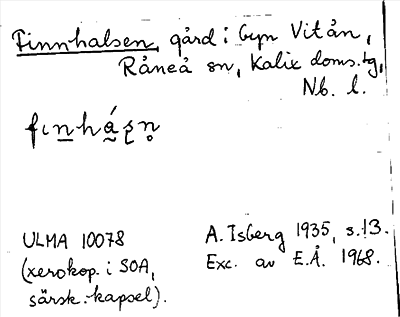 Finnhalsen, gård i byn Vitån,
Råneå sn, Kalix doms.tg,
Nb. l.
fın̲há̰ʂn̥
ULMA 10078
(xerokop. i SOA,
särsk. kapsel).
A. Isberg 1935, s. 13.
Exc. av E.Å. 1968.